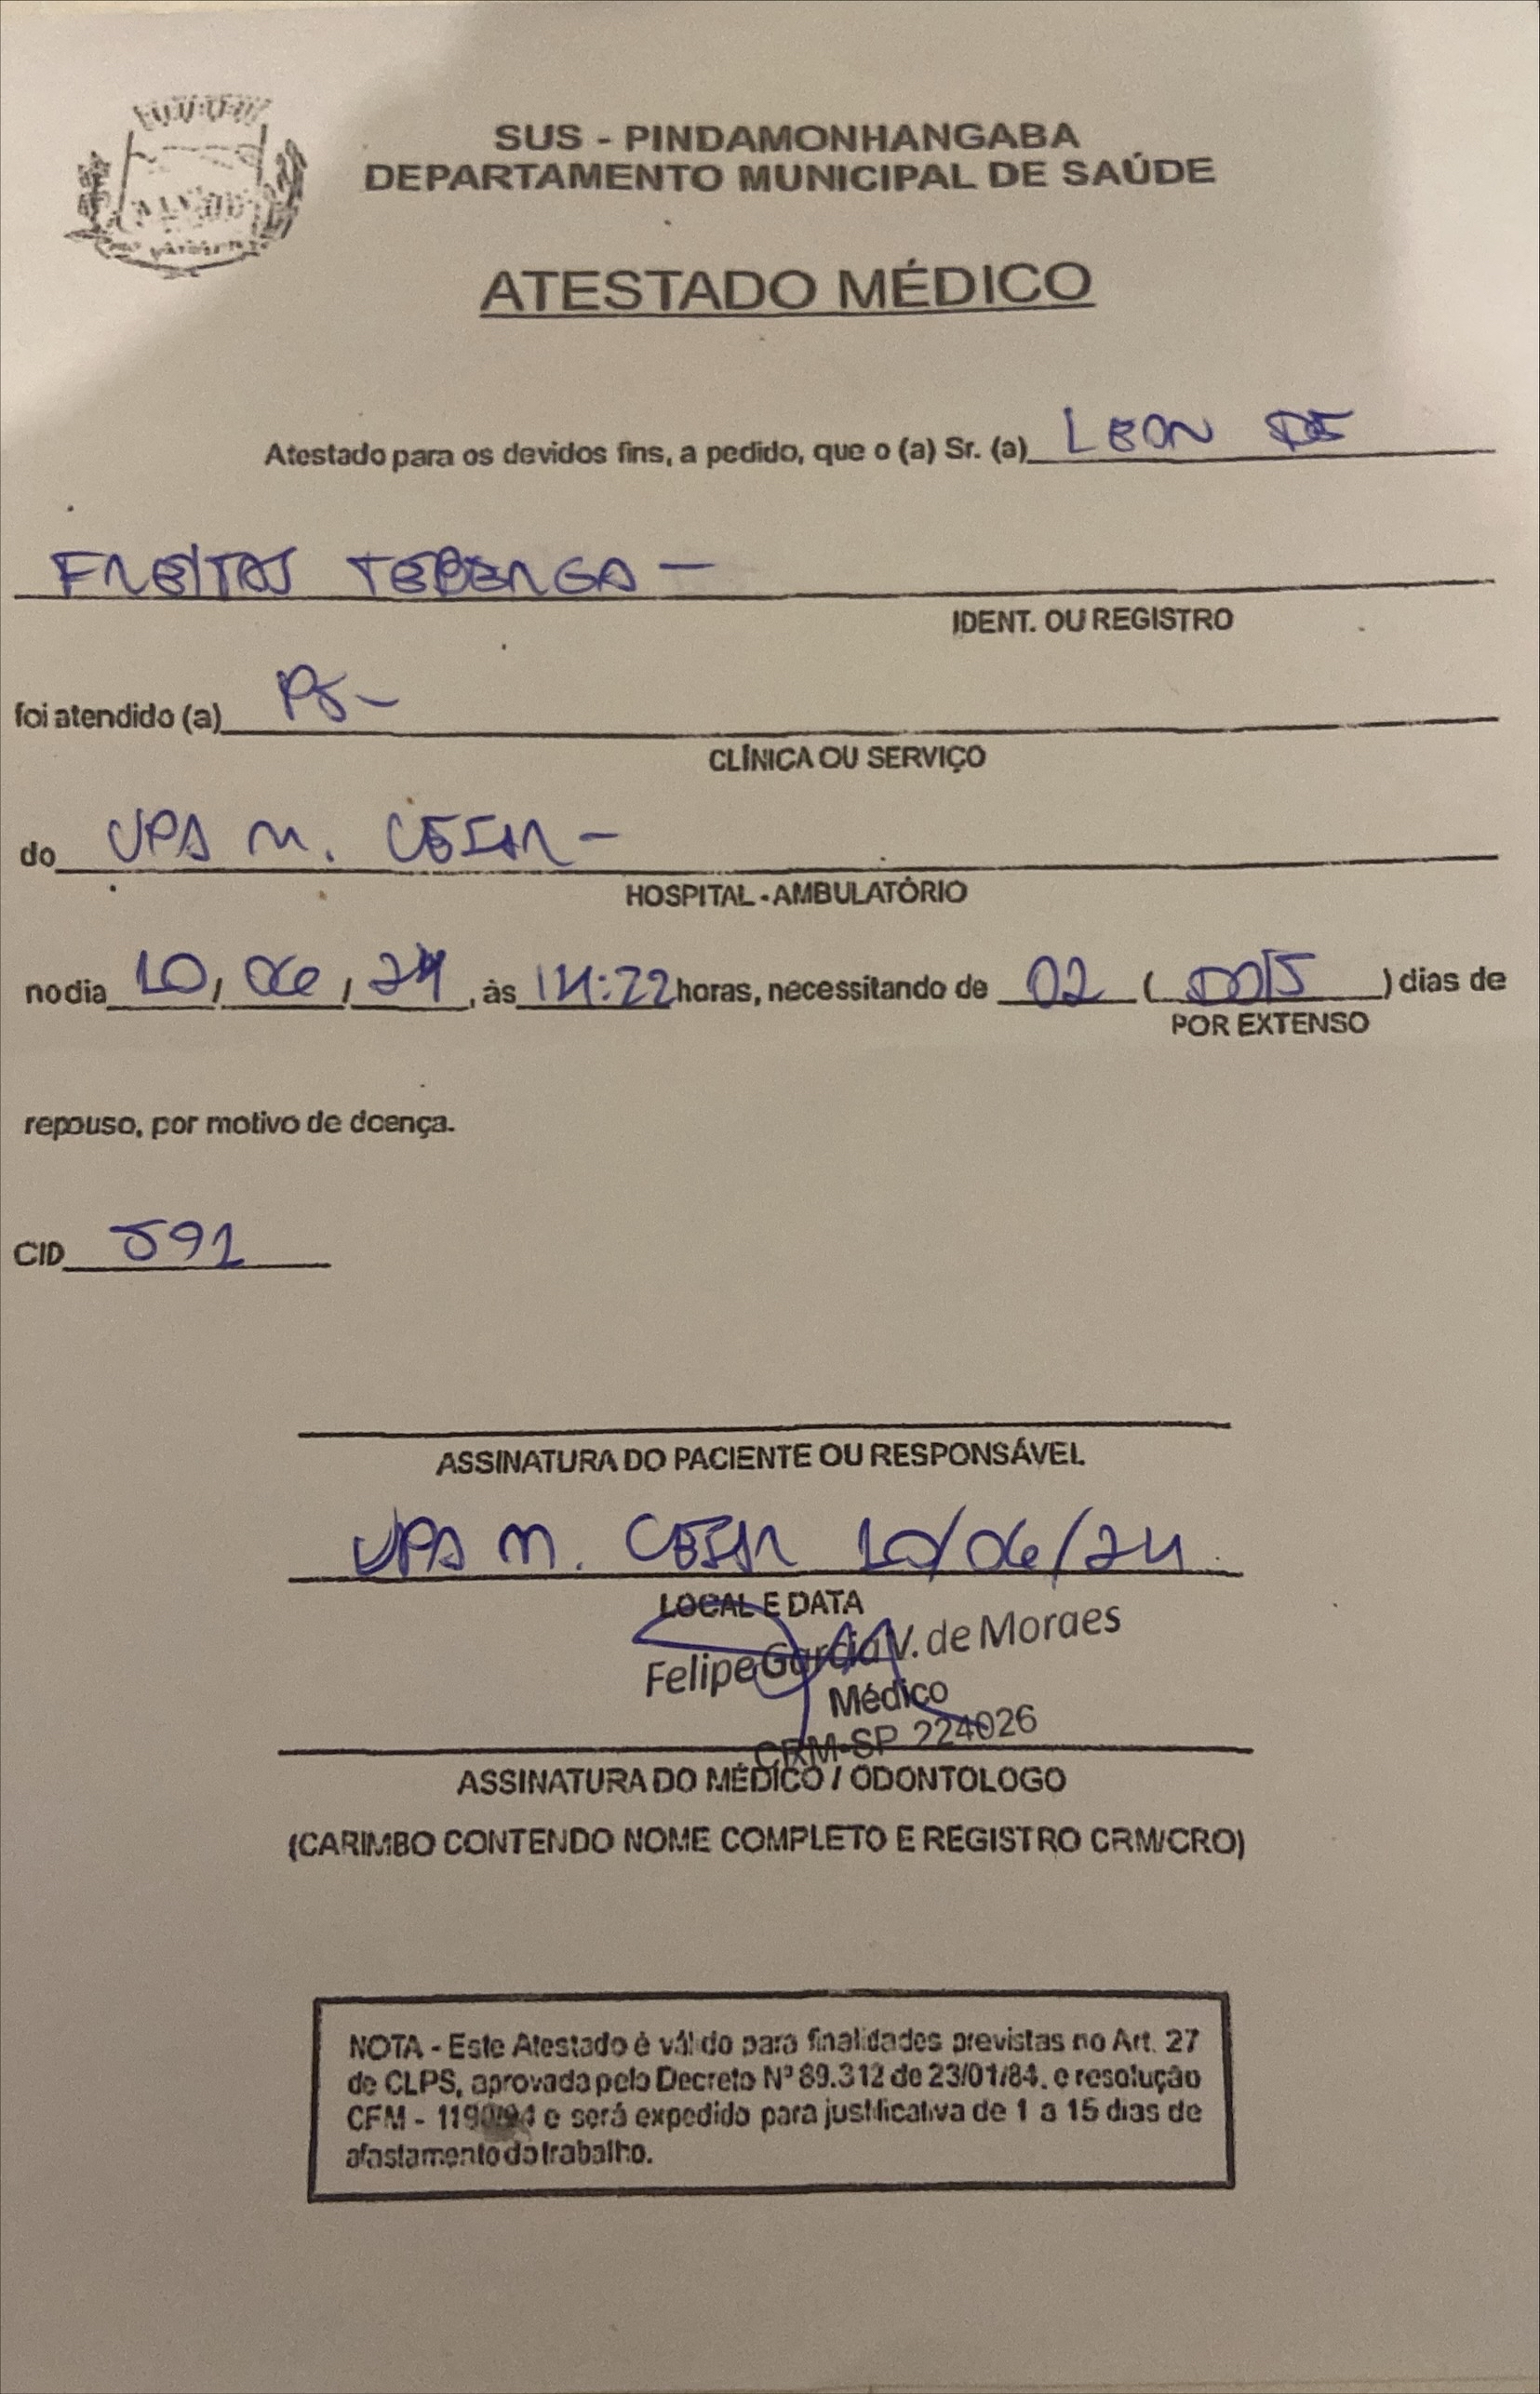 SUS - PINDAMONHANGABA
DEPARTAMENTO MUNICIPAL DE SAÚDE
ATESTADO MÉDICO
Atestado para os devidos fins, a pedido, que o (a) Sr. (a) LEON DE
FREITAS TEBERGA -
IDENT. OU REGISTRO
foi atendido (a) PS -
CLÍNICA OU SERVIÇO
do UPA M. CESAR -
HOSPITAL - AMBULATÓRIO
no dia 10, 06, 24, às 14:22 horas, necessitando de 02 ( DOIS ) dias de
POR EXTENSO
repouso, por motivo de doença.
CID
ASSINATURA DO PACIENTE OU RESPONSÁVEL
UPA M. CESAR 10/06/24
LOCAL E DATA
Felipe Garcia V. de Moraes
Médico
CRM-SP 224026
ASSINATURA DO MÉDICO / ODONTOLOGO
(CARIMBO CONTENDO NOME COMPLETO E REGISTRO CRM/CRO)
NOTA - Este Atestado é válido para finalidades previstas no Art. 27
de CLPS, aprovada pelo Decreto Nº 89.312 de 23/01/84. e resolução
CFM - e será expedido para justificativa de 1 a 15 dias de
afastamento do trabalho.